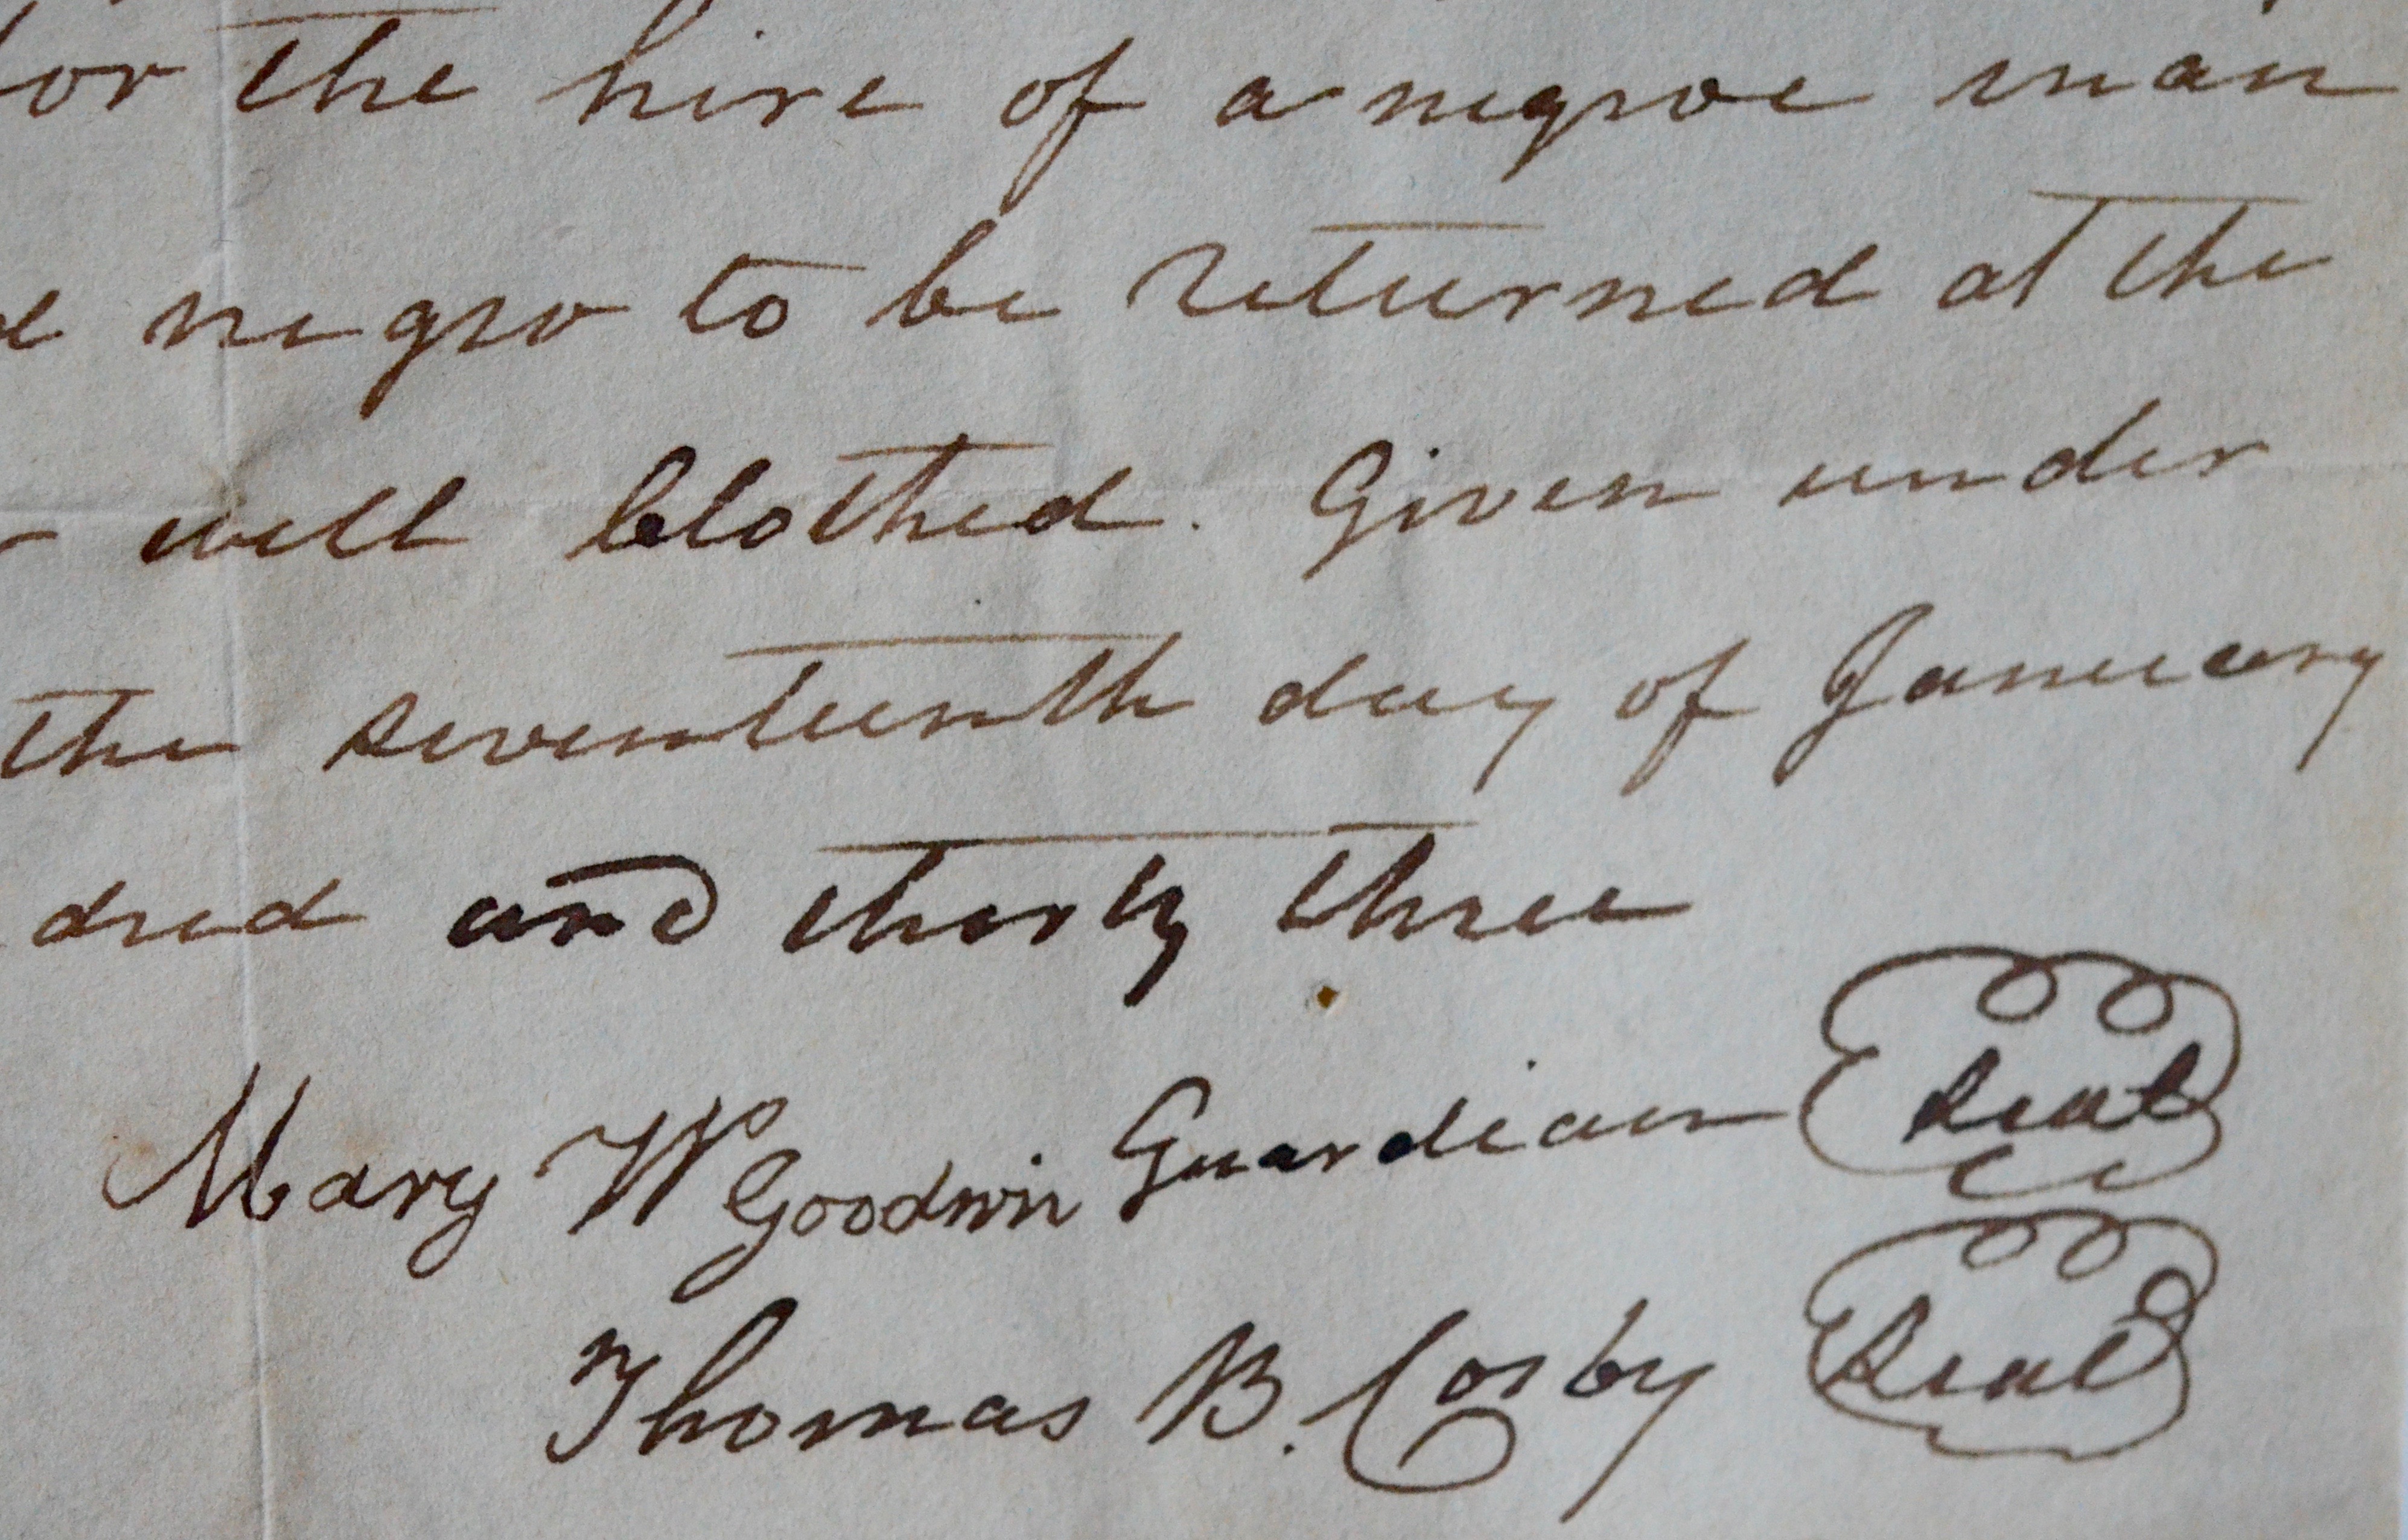 for the hire of a negroe man
negro to be returned at the
well Clothed. Given under
the seventeenth day of January
dred and thirty three
Mary W Goodwin Guardian Seal
Thomas B. Cosby Seal